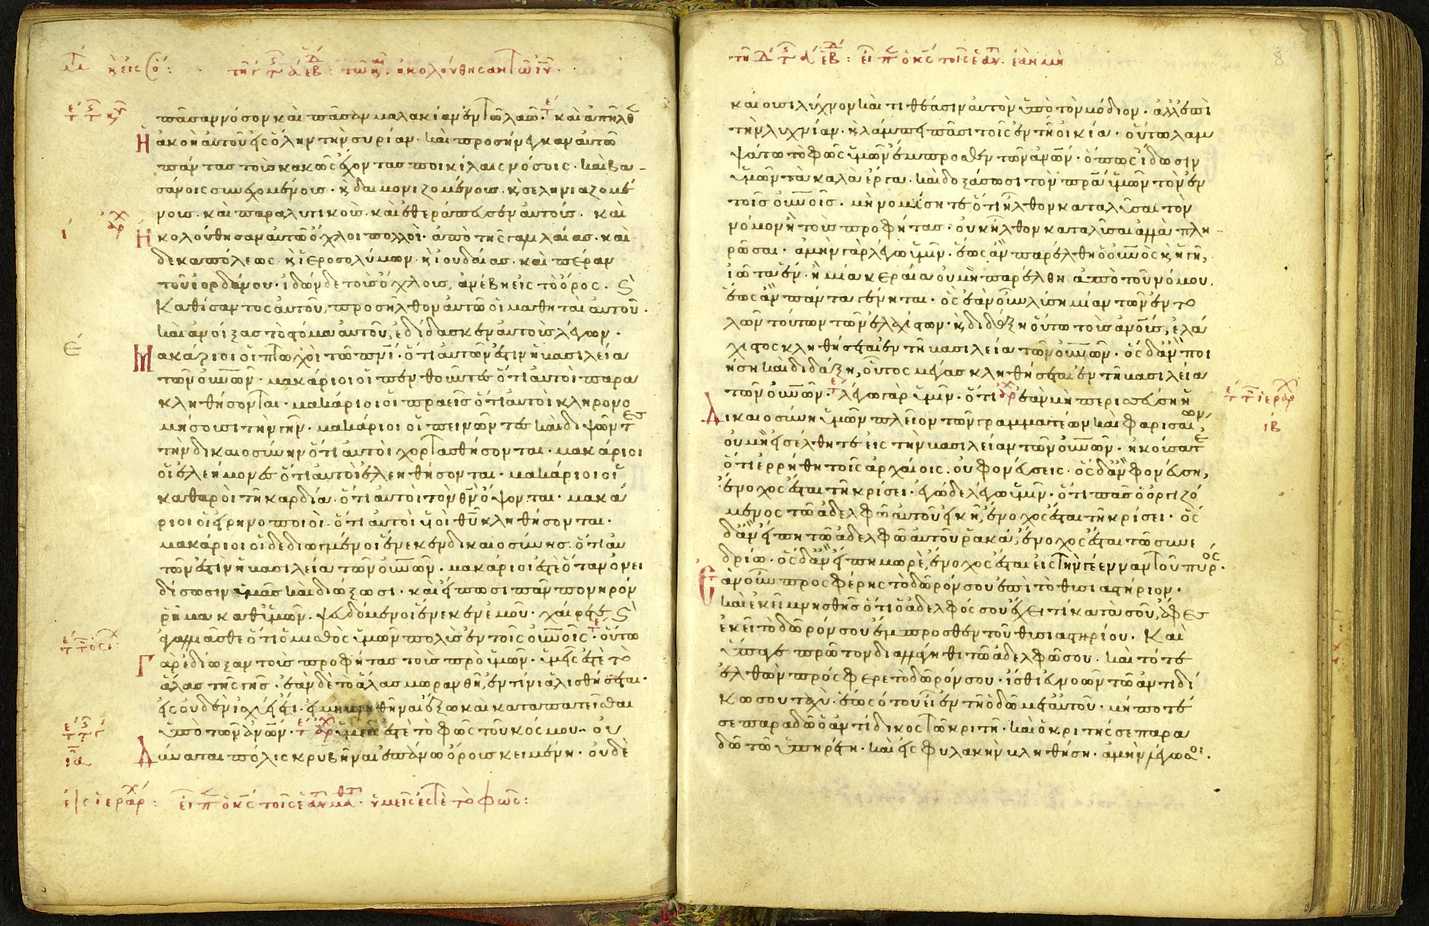 πᾶσαν νόσον καὶ πᾶσαν μαλακίαν ἐν τῶ λαῶ · καὶ ἀπῆλθ
Ἡ ἀκοὴ αὐτοῦ εἰς ὅλην τὴν συρίαν · καὶ προσήνεγκαν αὐτῶ
πάντας τοὺς κακῶς ἔχοντας ποικίλαις νόσοις · καὶ βα-
σάνοις συνεχομένους · κ δαιμονιζομένους · κ σεληνιαζομέ
νους · καὶ παραλυτικοὺς · καὶ ἐθεράπευσεν αὐτούς · καὶ
Ἠκολούθησαν αὐτῶ ὄχλοι πολλοὶ · ἀπὸ τῆς γαλιλαίας · καὶ
δεκαπόλεως · κ ἱεροσολύμων · κ ἰουδαίας · καὶ πέραν
τοῦ ἰορδάνου · ἰδὼν δὲ τοὺς ὄχλους, ἀνέβη εἰς τὸ ὄρος · κ
Καθίσαντος αὐτοῦ, προσῆλθον αὐτῶ οἱ μαθηταὶ αὐτοῦ ·
καὶ ἀνοίξας τὸ στόμα αὐτοῦ, ἐδίδασκεν αὐτοὺς λέγων ·
Μακάριοι οἱ πτωχοὶ τῶ πνι · ὅτι αὐτῶν ἐστιν ἡ βασιλεία
τῶν οὐνῶν · μακάριοι οἱ πενθοῦντες ὅτι αὐτοὶ παρα
κληθήσονται · μακάριοι οἱ πραεῖς ὅτι αὐτοὶ κληρονο
μήσουσι τὴν γῆν · μακάριοι οἱ πεινῶντες καὶ διψῶντες
τὴν δικαιοσύνην ὅτι αὐτοὶ χορτασθήσονται · μακάριοι
οἱ ἐλεήμονες ὅτι αὐτοὶ ἐλεηθήσονται · μακάριοι οἱ
καθαροὶ τῆ καρδία · ὅτι αὐτοὶ τὸν θν ὄψονται · μακά
ριοι οἱ εἰρηνοποιοὶ · ὅτι αὐτοὶ υἱοὶ θυ κληθήσονται ·
μακάριοι οἱ δεδιωγμένοι ἕνεκεν δικαιοσύνης · ὅτι αὐ
τῶν ἐστιν ἡ βασιλεία τῶν οὐνῶν · μακάριοι ἐστε ὅταν ὀνει
δίσωσιν ὑμᾶς καὶ διώξωσι · καὶ εἴπωσι πᾶν πονηρὸν
ῥῆμα καθ' ὑμῶν · ψευδόμενοι ἕνεκεν ἐμοῦ · χαίρετε κ
ἀγαλλιᾶσθε ὅτι ὁ μισθὸς ὑμῶν πολὺς ἐν τοῖς οὐνοῖς · οὕτω
Γὰρ ἐδίωξαν τοὺς προφήτας τοὺς πρὸ ὑμῶν · ὑμεῖς ἐστὲ τὸ
ἅλας τῆς γῆς · ἐὰν δὲ τὸ ἅλας μωρανθῆ, ἐν τίνι ἁλισθήσεται ·
εἰς οὐδὲν ἰσχύει ἔτι · εἰ μὴ βληθῆναι ἔξω καὶ καταπατεῖσθαι
ὑπὸ τῶν ἀνων · ὑμεῖς ἐστὲ τὸ φῶς τοῦ κόσμου · οὐ
Δύναται πόλις κρυβῆναι ἐπάνω ὄρους κειμένη · οὐδὲ
ὑμεῖς ἐστὲ τὸ φῶς :
8
καίουσι λύχνον καὶ τιθέασιν αὐτὸν ὑπὸ τὸν μόδιον · ἀλλ' ἐπὶ
τὴν λυχνίαν · κ λάμπει πᾶσι τοῖς ἐν τῆ οἰκία · οὕτω λαμ
ψάτω τὸ φῶς ὑμῶν ἔμπροσθεν τῶν ἀνων · ὅπως ἴδωσιν
ὑμῶν τὰ καλὰ ἔργα · καὶ δοξάσωσι τὸν πρα ὑμῶν τὸν ἐν
τοῖς οὐνοῖς · μὴ νομίσητε ὅτι ἦλθον καταλῦσαι τὸν
νόμον ἢ τοὺς προφήτας · οὐκ ἦλθον καταλῦσαι ἀλλὰ πλη-
ρῶσαι · ἀμὴν γὰρ λέγω ὑμῖν · ἕως ἂν παρέλθη ὁ οὐνος κ ἡ γῆ,
ἰῶτα ἓν · ἢ μία κεραία οὐ μὴ παρέλθη ἀπὸ τοῦ νόμου.
ἕως ἂν πάντα γένηται · ὃς ἐὰν οὖν λύση μίαν τῶν ἐντο
λῶν τούτων τῶν ἐλαχίστων · κ διδάξη οὕτω τοὺς ἀνους, ἐλά
χιστος κληθήσεται ἐν τῆ βασιλεία τῶν οὐνῶν · ὃς δ' ἂν ποι
ήση καὶ διδάξη, οὗτος μέγας κληθήσεται ἐν τῆ βασιλεία
τῶν οὐνῶν · λέγω γὰρ ὑμῖν · ὅτι ἐὰν μὴ περισσεύση ἡ
Δικαιοσύνη ὑμῶν πλεῖον τῶν γραμματέων καὶ φαρισαίων,
οὐ μὴ εἰσέλθητε εἰς τὴν βασιλείαν τῶν οὐνῶν · ἠκούσατε
ὅτι ἐρρήθη τοῖς ἀρχαίοις · οὐ φονεύσεις · ὃς δ' ἂν φονεύση,
ἔνοχος ἔσται τῆ κρίσει · ἐγὼ δὲ λέγω ὑμῖν · ὅτι πᾶς ὁ ὀργιζό
μενος τῶ ἀδελφῶ αὐτοῦ εἰκῆ, ἔνοχος ἔσται τῆ κρίσει · ὃς
δ' ἂν εἴπη τῶ ἀδελφῶ αὐτοῦ ῥακά, ἔνοχος ἔσται τῶ συνε
δρίω · ὃς δ' ἂν εἴπη μωρὲ, ἔνοχος ἔσται εἰς τὴν γέενναν τοῦ πυρός ·
Ἐὰν οὖν προσφέρης τὸ δῶρόν σου ἐπὶ τὸ θυσιαστήριον ·
καὶ ἐκεῖ μνησθῆς ὅτι ὁ ἀδελφός σου ἔχει τι κατὰ σοῦ, ἄφες
ἐκεῖ τὸ δῶρόν σου ἔμπροσθεν τοῦ θυσιαστηρίου · Καὶ
ὕπαγε πρῶτον διαλλάγηθι τῶ ἀδελφῶ σου · καὶ τότε
ἐλθὼν πρόσφερε τὸ δῶρόν σου · ἴσθι εὐνοῶν τῶ ἀντιδί
κω σου ταχὺ · ἕως ὅτου εἶ ἐν τῆ ὁδῶ μετ' αὐτοῦ · μήποτέ
σε παραδῶ ὁ ἀντίδικος τῶ κριτῆ · καὶ ὁ κριτής σε παρα
δῶ τῶ ὑπηρέτη · καὶ εἰς φυλακὴν βληθήση · ἀμὴν λέγω σοι ·